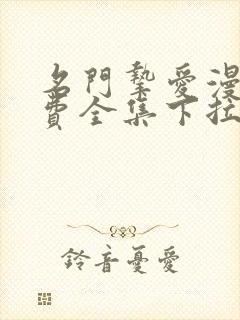 名門摯愛漫
費全集下拉
鈴音憂愛